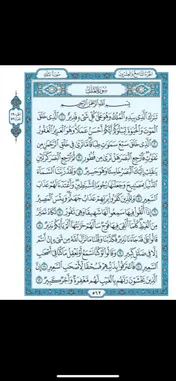 الجزء التاسع والعشرون سورة الملك
سُورَةُ المُلْكِ
بِسْمِ اللَّهِ الرَّحْمَٰنِ الرَّحِيمِ
تَبَٰرَكَ الَّذِي بِيَدِهِ الْمُلْكُ وَهُوَ عَلَىٰ كُلِّ شَيْءٍ قَدِيرٌ ١ الَّذِي خَلَقَ
الْمَوْتَ وَالْحَيَوٰةَ لِيَبْلُوَكُمْ أَيُّكُمْ أَحْسَنُ عَمَلًا وَهُوَ الْعَزِيزُ الْغَفُورُ ٢
الَّذِي خَلَقَ سَبْعَ سَمَٰوَٰتٍ طِبَاقًا مَّا تَرَىٰ فِي خَلْقِ الرَّحْمَٰنِ مِن
تَفَٰوُتٍ فَارْجِعِ الْبَصَرَ هَلْ تَرَىٰ مِن فُطُورٍ ٣ ثُمَّ ارْجِعِ الْبَصَرَ كَرَّتَيْنِ
يَنقَلِبْ إِلَيْكَ الْبَصَرُ خَاسِئًا وَهُوَ حَسِيرٌ ٤ وَلَقَدْ زَيَّنَّا السَّمَاءَ
الدُّنْيَا بِمَصَٰبِيحَ وَجَعَلْنَٰهَا رُجُومًا لِّلشَّيَٰطِينِ وَأَعْتَدْنَا لَهُمْ عَذَابَ
السَّعِيرِ ٥ وَلِلَّذِينَ كَفَرُوا بِرَبِّهِمْ عَذَابُ جَهَنَّمَ وَبِئْسَ الْمَصِيرُ ٦
إِذَا أُلْقُوا فِيهَا سَمِعُوا لَهَا شَهِيقًا وَهِيَ تَفُورُ ٧ تَكَادُ تَمَيَّزُ
مِنَ الْغَيْظِ كُلَّمَا أُلْقِيَ فِيهَا فَوْجٌ سَأَلَهُمْ خَزَنَتُهَا أَلَمْ يَأْتِكُمْ نَذِيرٌ ٨
قَالُوا بَلَىٰ قَدْ جَاءَنَا نَذِيرٌ فَكَذَّبْنَا وَقُلْنَا مَا نَزَّلَ اللَّهُ مِن شَيْءٍ إِنْ أَنتُمْ
إِلَّا فِي ضَلَٰلٍ كَبِيرٍ ٩ وَقَالُوا لَوْ كُنَّا نَسْمَعُ أَوْ نَعْقِلُ مَا كُنَّا فِي أَصْحَٰبِ
السَّعِيرِ ١٠ فَاعْتَرَفُوا بِذَنبِهِمْ فَسُحْقًا لِّأَصْحَٰبِ السَّعِيرِ ١١ إِنَّ
الَّذِينَ يَخْشَوْنَ رَبَّهُم بِالْغَيْبِ لَهُم مَّغْفِرَةٌ وَأَجْرٌ كَبِيرٌ ١٢
٥٦٢